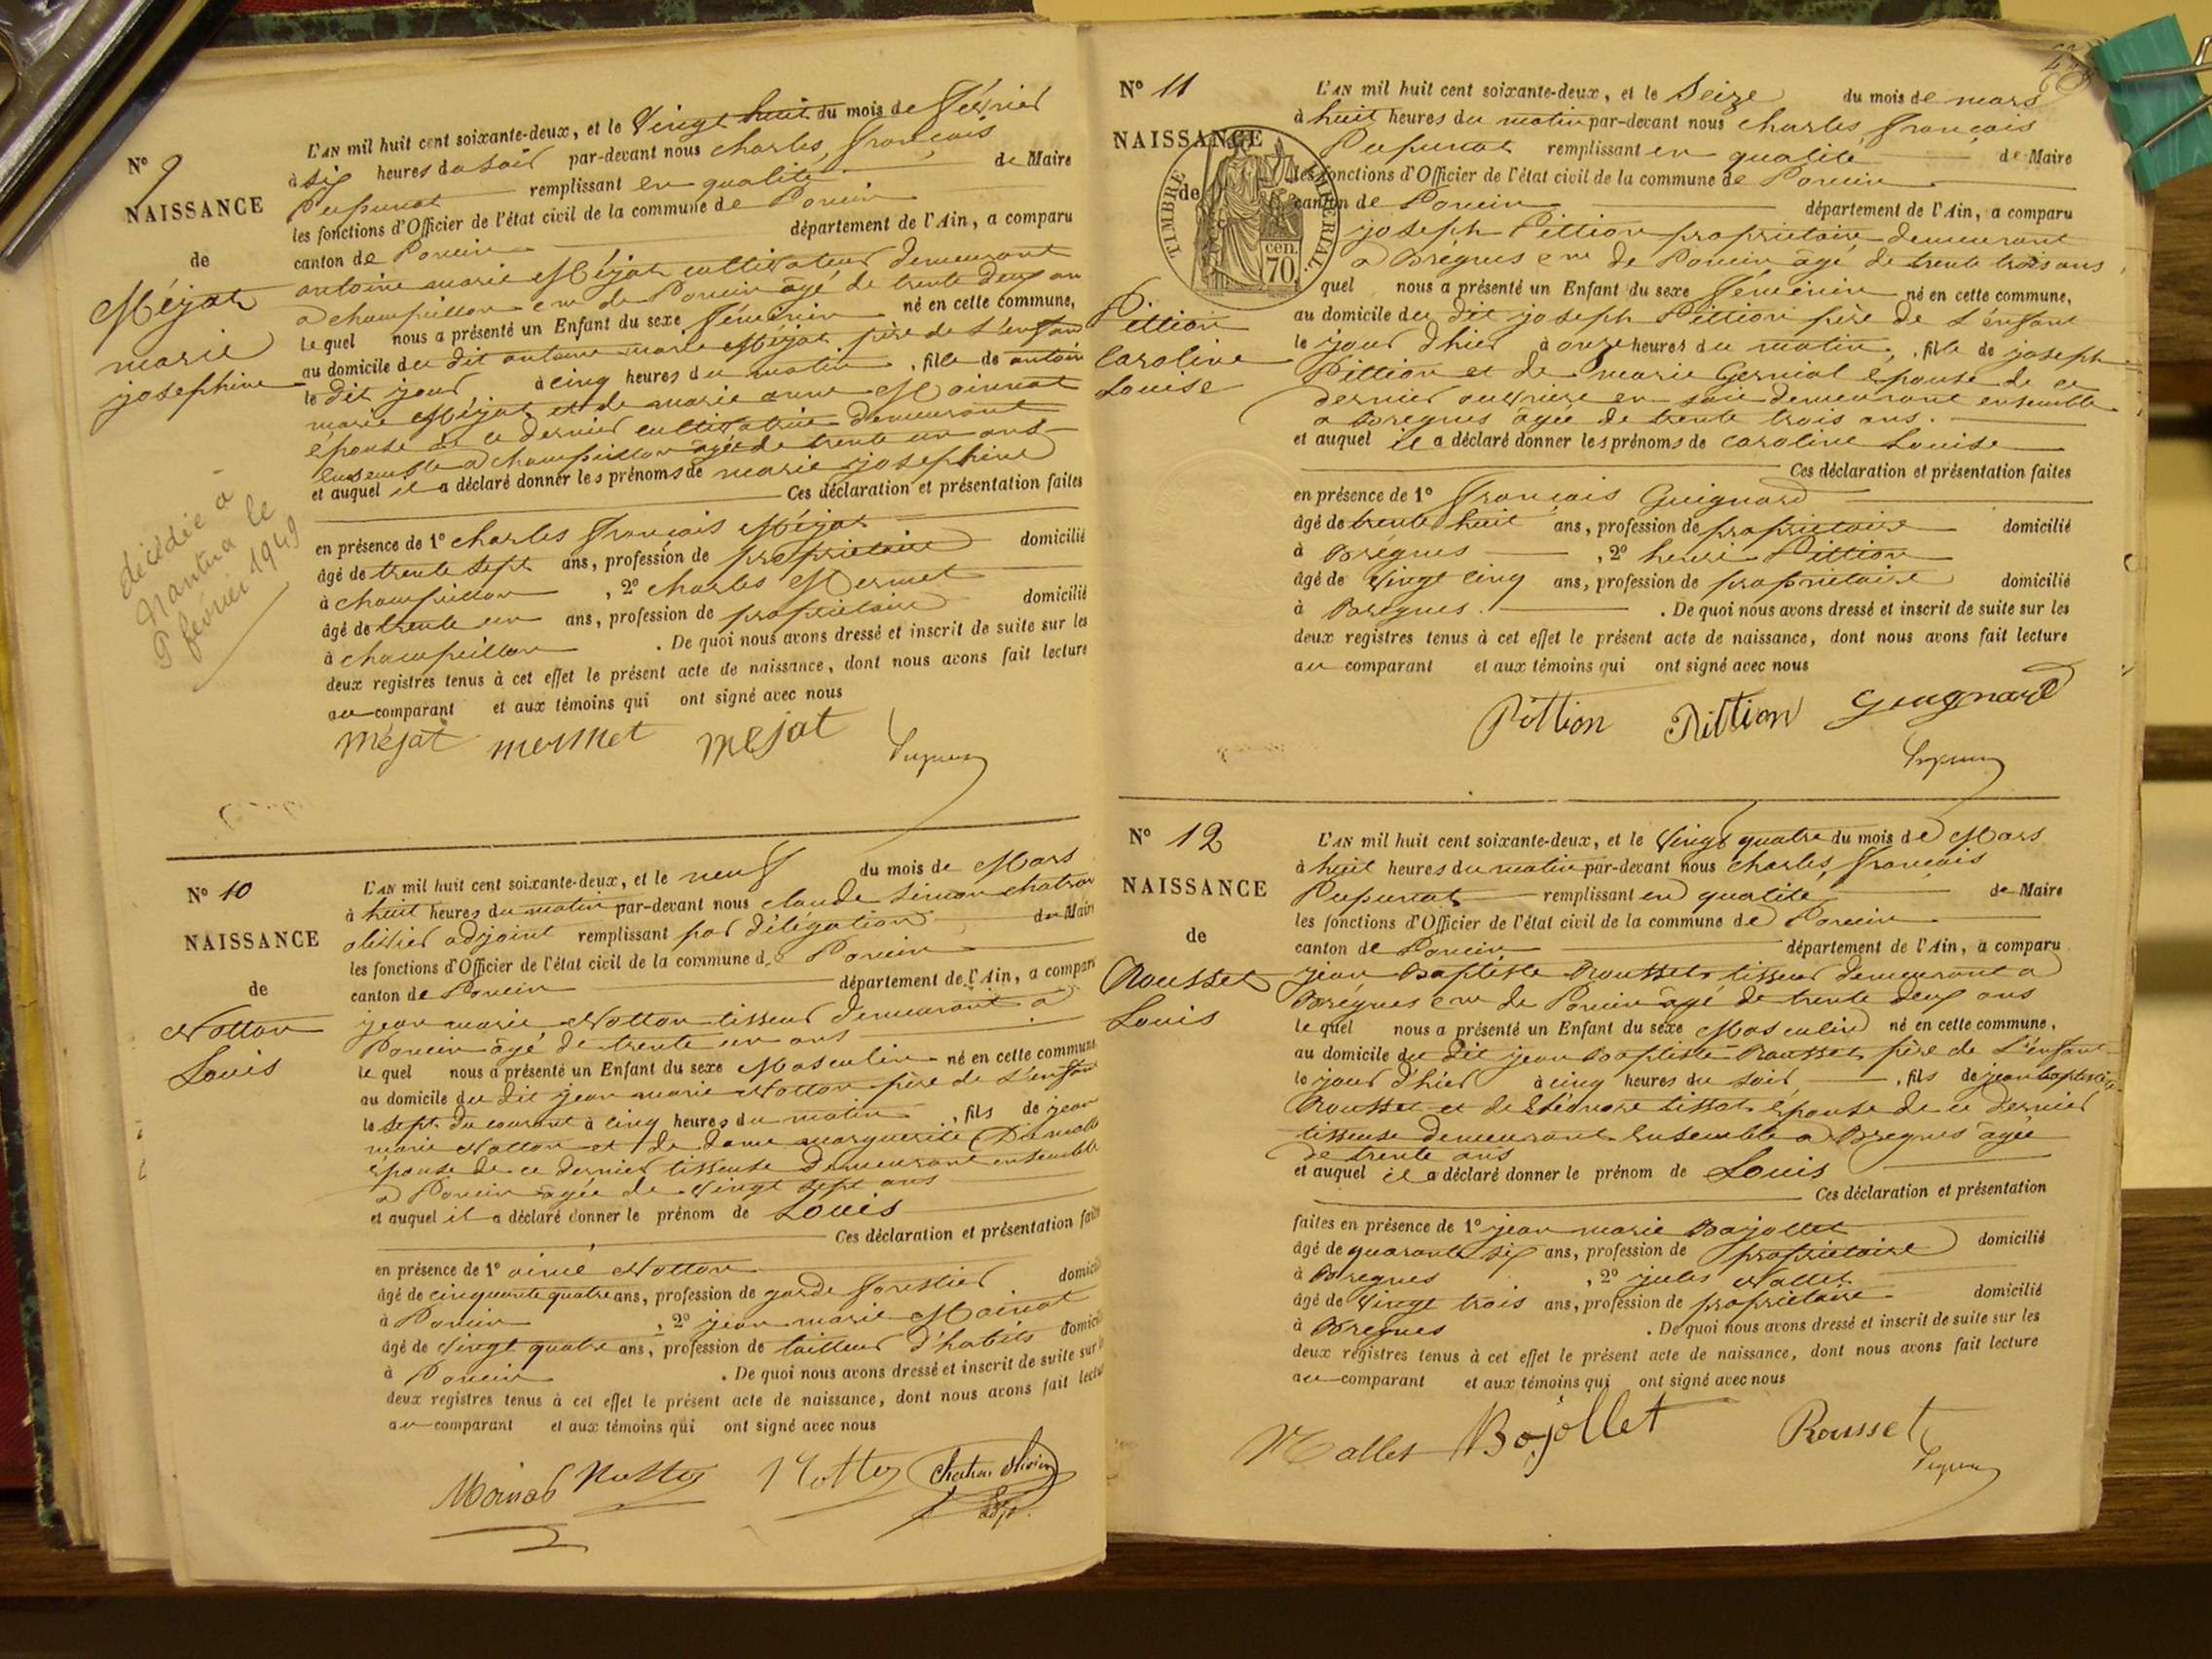 N° 9
NAISSANCE
de
Méjat
marie
josephine
décédée à
Nantua le
9 février 1949
L'AN mil huit cent soixante-deux, et le Vingt huit du mois de Février
à six heures du soir par-devant nous charles, françois
Pupunat remplissant en qualité de Maire
les fonctions d'Officier de l'état civil de la commune de Poncin
canton de Poncin département de l'Ain, a comparu
antoine marie Méjat cultivateur demeurant
a champeillon cne de Poncin âgé de trente deux an
le quel nous a présenté un Enfant du sexe Féminin né en cette commune,
au domicile du dit antoine marie Méjat père de l'enfant
le dit jour à cinq heures du matin, fille de antoine
marie Méjat et de marie anne Moinnat
épouse de ce dernier cultivatrice demeurant
ensemble a champeillon âgée de trente un ans
et auquel il a déclaré donner les prénoms de marie josephine
Ces déclaration et présentation faites
en présence de 1° charles françois Méjat
âgé de trente sept ans, profession de propriétaire domicilié
à champeillon, 2° charles Mermet
âgé de trente un ans, profession de propriétaire domicilié
à champeillon. De quoi nous avons dressé et inscrit de suite sur les
deux registres tenus à cet effet le présent acte de naissance, dont nous avons fait lecture
au comparant et aux témoins qui ont signé avec nous
Méjat mermet mejat
Pupunat
N° 10
NAISSANCE
de
Notton
Louis
L'AN mil huit cent soixante-deux, et le neuf du mois de Mars
à huit heures du matin par-devant nous claude Simon chatron
olivier adjoint remplissant par délégation du Maire
les fonctions d'Officier de l'état civil de la commune de Poncin
canton de Poncin département de l'Ain, a comparu
jean marie Notton tisseur demeurant a
Poncin âgé de trente un ans
le quel nous a présenté un Enfant du sexe Masculin né en cette commune
au domicile du dit jean marie Notton père de l'enfant
le sept du courant à cinq heures du matin, fils de jean
marie Notton et de dame marguerite
épouse de ce dernier tisseuse demeurant ensemble
a Poncin âgée de vingt sept ans
et auquel il a déclaré donner le prénom de Louis
Ces déclaration et présentation faites
en présence de 1° aimé Notton
âgé de cinquante quatre ans, profession de garde forestier domicilié
à Poncin, 2° jean marie Moinat
âgé de vingt quatre ans, profession de tailleur d'habits domicilié
à Poncin. De quoi nous avons dressé et inscrit de suite sur les
deux registres tenus à cet effet le présent acte de naissance, dont nous avons fait lecture
au comparant et aux témoins qui ont signé avec nous
Moinat Notton Notton Chatron Olivier
adjt
N° 11
NAISSANCE
de
TIMBRE IMPERIAL.
cen
70
Pittion
Caroline
Louise
L'AN mil huit cent soixante-deux, et le Seize du mois de mars
à huit heures du matin par-devant nous charles françois
Pupunat remplissant en qualité de Maire
les fonctions d'Officier de l'état civil de la commune de Poncin
canton de Poncin département de l'Ain, a comparu
joseph Pittion propriétaire demeurant
a Brégnes cne de Poncin âgé de trente trois ans
quel nous a présenté un Enfant du sexe Féminin né en cette commune,
au domicile du dit joseph Pittion père de l'énfant
le jour d'hier à onze heures du matin, fille de joseph
Pittion et de marie Gernial épouse de ce
dernier ouvrière en soie demeurant ensemble
a Bregnes âgée de trente trois ans.
et auquel il a déclaré donner les prénoms de caroline Louise
Ces déclaration et présentation faites
en présence de 1° françois Guignard
âgé de trente huit ans, profession de propriétaire domicilié
à Brégnes, 2° henri Pittion
âgé de Vingt Cinq ans, profession de propriétaire domicilié
à Bregnes. De quoi nous avons dressé et inscrit de suite sur les
deux registres tenus à cet effet le présent acte de naissance, dont nous avons fait lecture
au comparant et aux témoins qui ont signé avec nous
Pittion Pittion Guignard
Pupunat
N° 12
NAISSANCE
de
Rousset
Louis
L'AN mil huit cent soixante-deux, et le Vingt quatre du mois de Mars
à huit heures du matin par-devant nous charles, françois
Pupunat remplissant en qualité de Maire
les fonctions d'Officier de l'état civil de la commune de Poncin
canton de Poncin département de l'Ain, a comparu
jean Baptiste Rousset tisseur demeurant a
Brégnes cne de Poncin âgé de trente deux ans
le quel nous a présenté un Enfant du sexe Masculin né en cette commune,
au domicile du dit jean Baptiste Rousset père de l'énfant
le jour d'hier à cinq heures du soir, fils de jean baptiste
Rousset et de Eléonore Tissot épouse de ce dernier
tisseuse demeurant Ensemble a Bregnes âgée
de trente ans
et auquel il a déclaré donner le prénom de Louis
Ces déclaration et présentation
faites en présence de 1° jean marie Bajollet
âgé de quarante six ans, profession de propriétaire domicilié
à Bregnes, 2° jules Nallet
âgé de Vingt trois ans, profession de propriétaire domicilié
à Bregnes. De quoi nous avons dressé et inscrit de suite sur les
deux registres tenus à cet effet le présent acte de naissance, dont nous avons fait lecture
au comparant et aux témoins qui ont signé avec nous
Nallet Bajollet Rousset
Pupunat